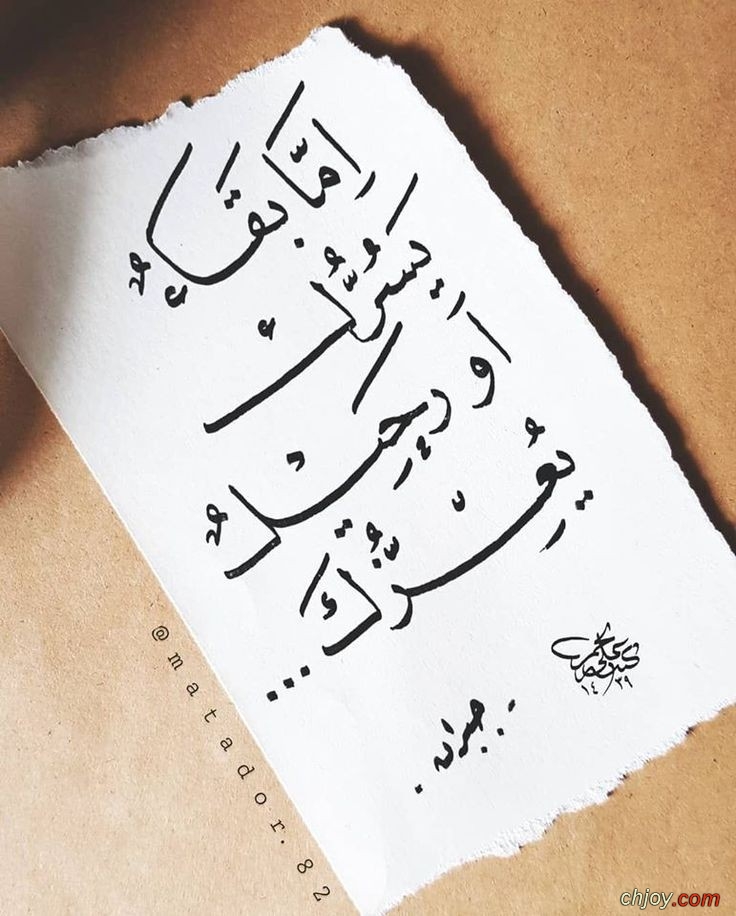 إمَّا بَقَاءٌ
يَسُرُّكَ
أَو رَحِيلٌ
يُعِزُّكَ...
- جبران .
١٤٣٩
@matador.82
chjoy.com